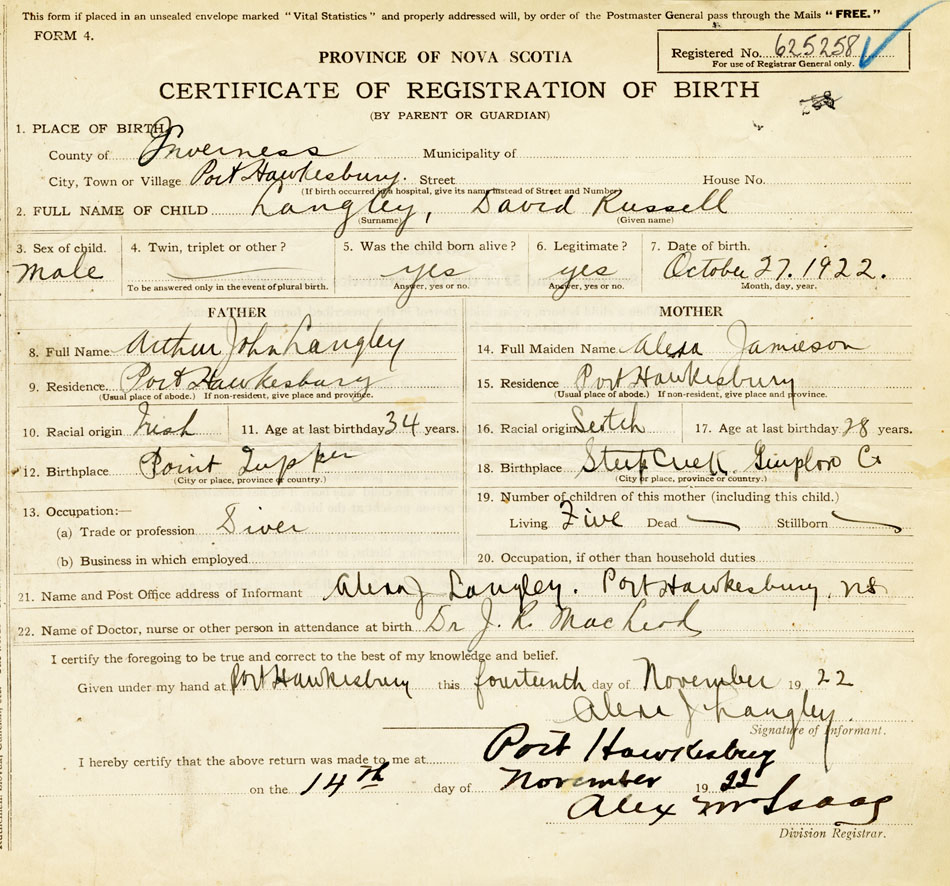 This form if placed in an unsealed envelope marked "Vital Statistics" and properly addressed will, by order of the Postmaster General pass through the Mails "FREE."
FORM 4.
Registered No. 625258
For use of Registrar General only.
PROVINCE OF NOVA SCOTIA
CERTIFICATE OF REGISTRATION OF BIRTH
(BY PARENT OR GUARDIAN)
1. PLACE OF BIRTH
County of Inverness Municipality of
City, Town or Village Port Hawkesbury. Street House No.
(If birth occurred in a hospital, give its name instead of Street and Number)
2. FULL NAME OF CHILD Langley, David Russell
(Surname) (Given name)
3. Sex of child. 4. Twin, triplet or other? 5. Was the child born alive? 6. Legitimate? 7. Date of birth.
male yes yes October 27. 1922.
To be answered only in the event of plural birth. Answer, yes or no. Answer, yes or no. Month, day, year.
FATHER MOTHER
8. Full Name Arthur John Langley 14. Full Maiden Name Alexa Jamieson
9. Residence. Port Hawkesbury 15. Residence Port Hawkesbury
(Usual place of abode.) If non-resident, give place and province. (Usual place of abode.) If non-resident, give place and province.
10. Racial origin Irish 11. Age at last birthday 34 years. 16. Racial origin Scotch 17. Age at last birthday 28 years.
12. Birthplace Point Tupper 18. Birthplace Steep Creek Co
(City or place, province or country.) (City or place, province or country.)
19. Number of children of this mother (including this child.)
13. Occupation:— Living Five Dead Stillborn
(a) Trade or profession Diver
(b) Business in which employed 20. Occupation, if other than household duties
21. Name and Post Office address of Informant Alexa J Langley. Port Hawkesbury, NS
22. Name of Doctor, nurse or other person in attendance at birth Dr J. R. MacLeod
I certify the foregoing to be true and correct to the best of my knowledge and belief.
Given under my hand at Port Hawkesbury this fourteenth day of November 1922
Alexa J Langley.
Signature of Informant.
I hereby certify that the above return was made to me at Port Hawkesbury
on the 14th day of November 1922
Alex McIsaac
Division Registrar.